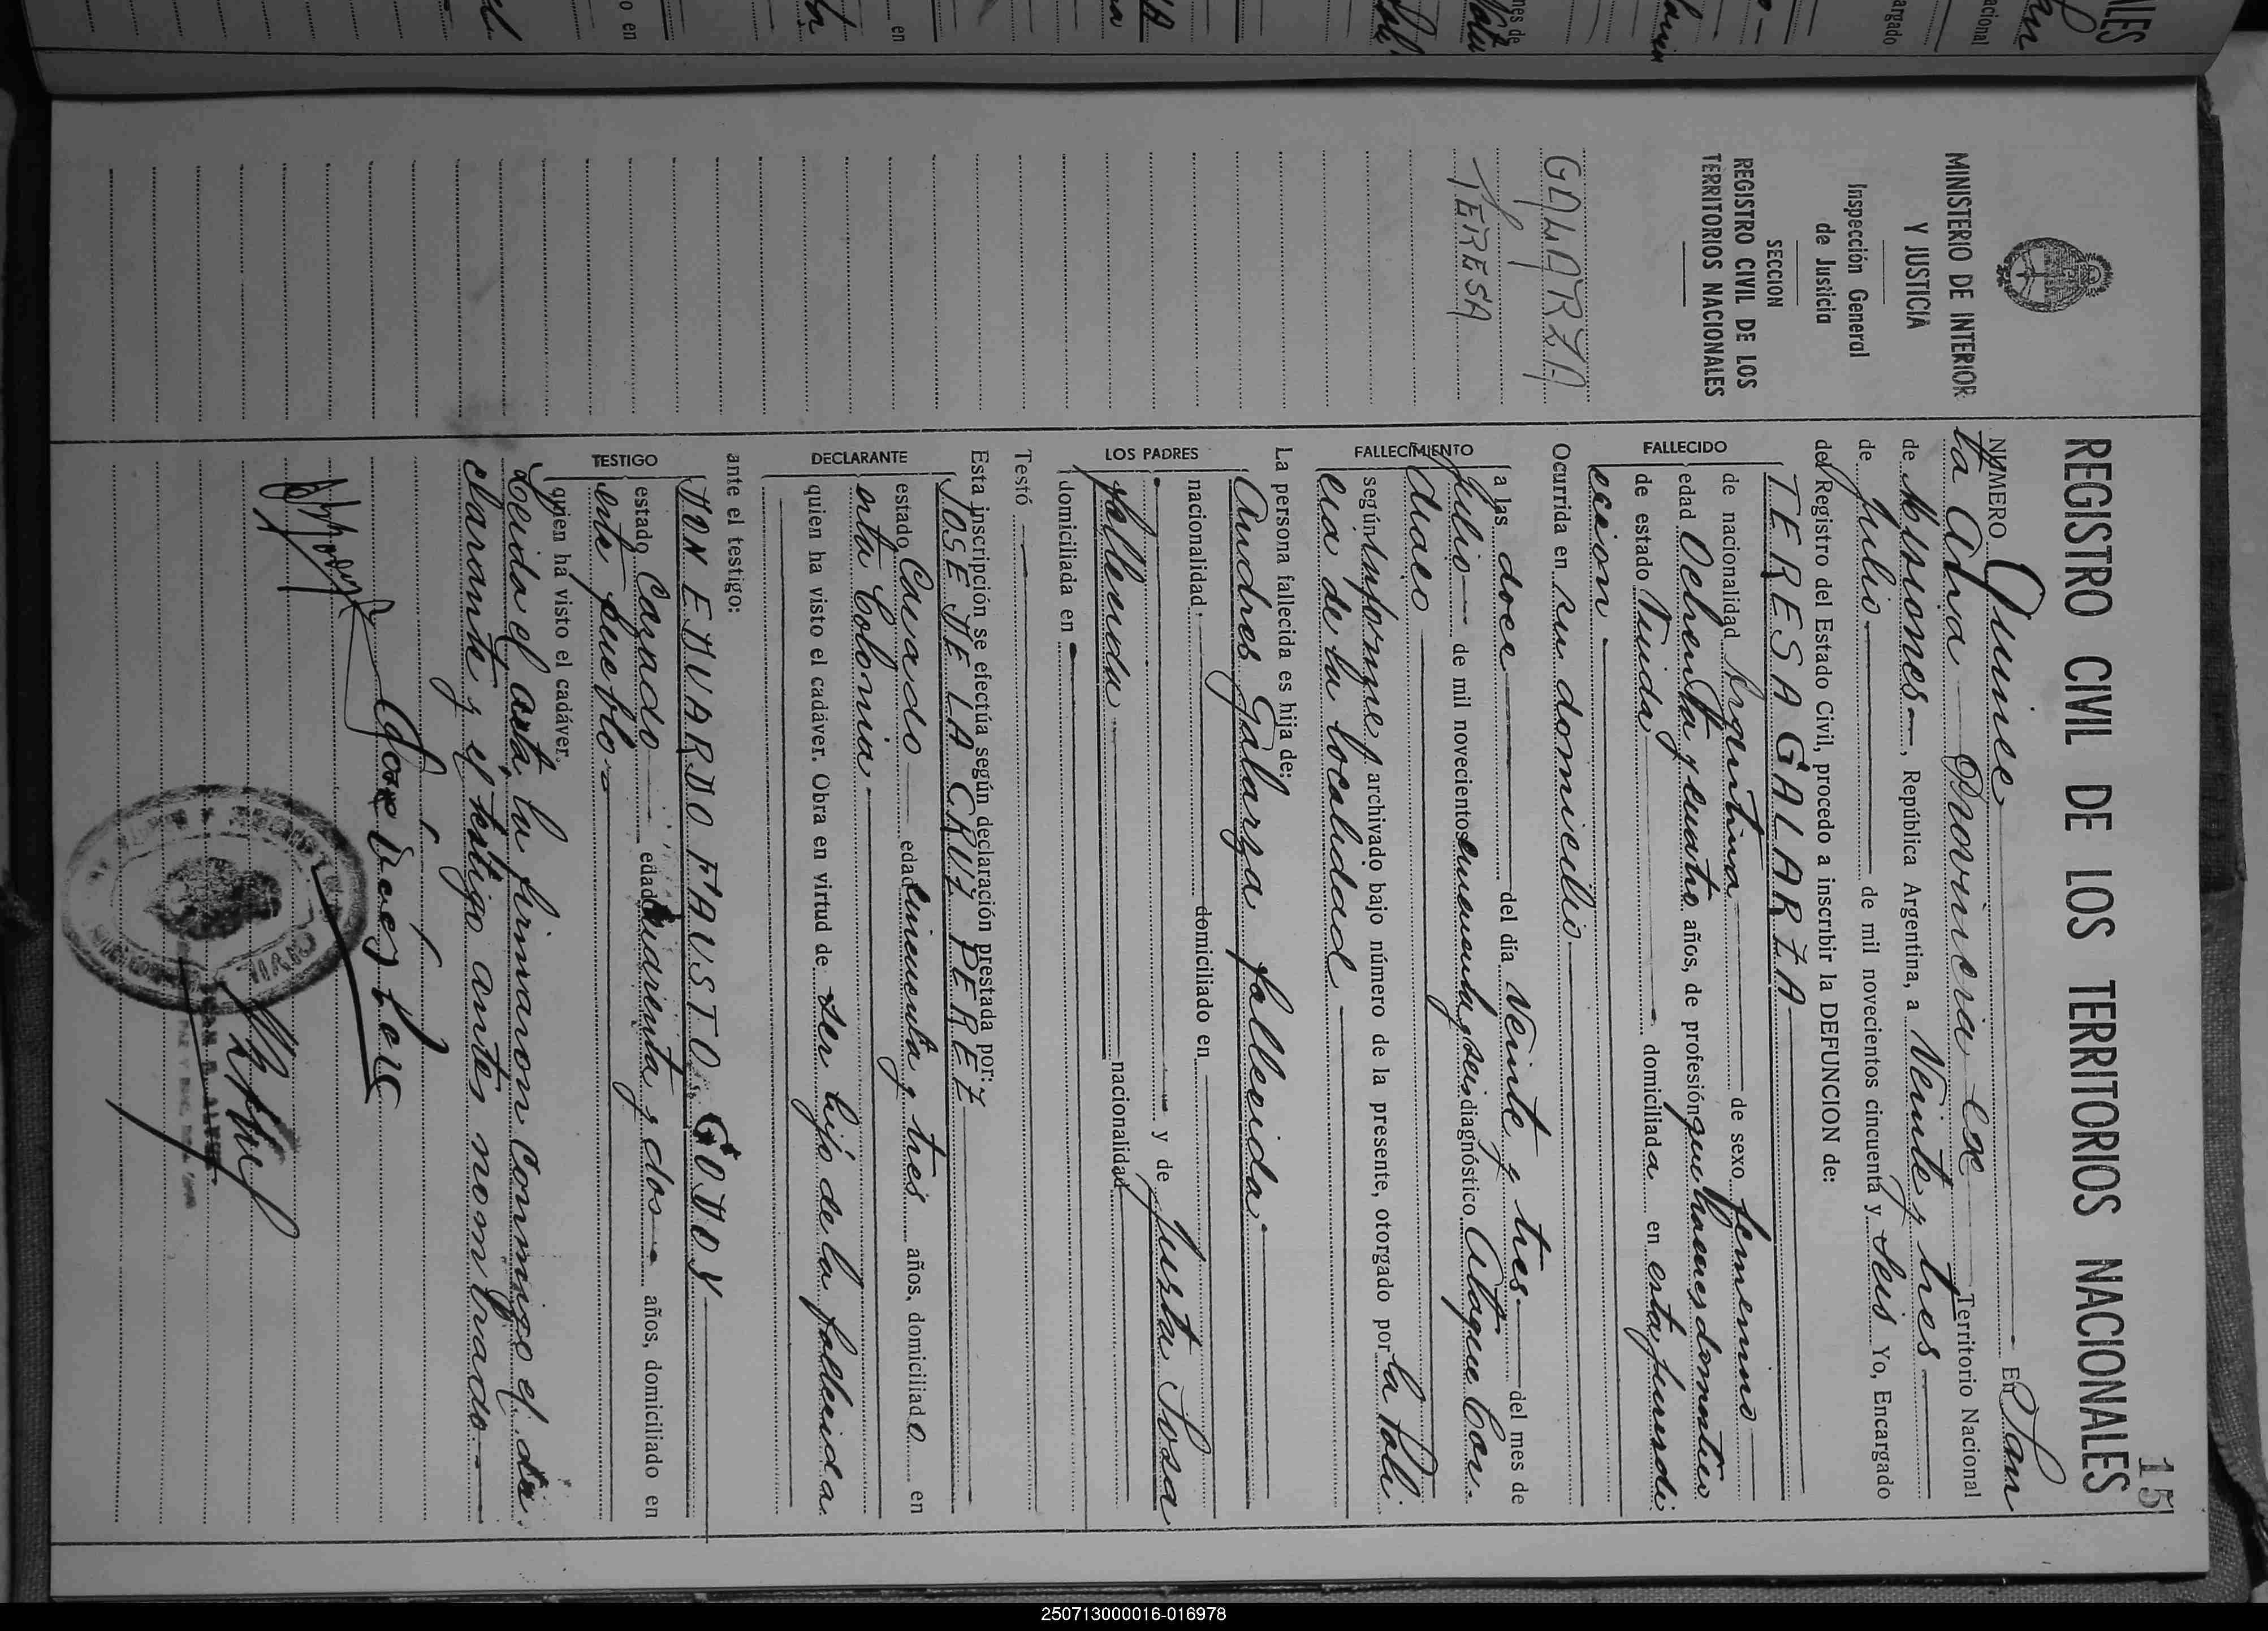 15
REGISTRO CIVIL DE LOS TERRITORIOS NACIONALES
MINISTERIO DE INTERIOR
Y JUSTICIA
Inspección General
de Justicia
SECCION
REGISTRO CIVIL DE LOS
TERRITORIOS NACIONALES
GALARZA
TERESA
NUMERO Quince En San
ta Ana Provincia ex Territorio Nacional
de Misiones, República Argentina, a Veinte y tres
de Julio de mil novecientos cincuenta y seis Yo, Encargado
del Registro del Estado Civil, procedo a inscribir la DEFUNCION de:
FALLECIDO
TERESA GALARZA
de nacionalidad Argentina de sexo femenino
edad Ochenta y cuatro años, de profesión quehaceres domestico
de estado Viuda domiciliada en esta jurisdi
ccion
Ocurrida en su domicilio
FALLECIMIENTO
a las doce del día Veinte y tres del mes de
Julio de mil novecientos cincuenta y seis diagnóstico Ataque Car-
diaco
según informe archivado bajo número de la presente, otorgado por la Poli
cia de la localidad
La persona fallecida es hija de:
LOS PADRES
Andres Galarza fallecida.
nacionalidad domiciliado en
y de Justa Sosa
fallecida nacionalidad
domiciliada en
Testó
Esta inscripción se efectúa según declaración prestada por:
DECLARANTE
JOSE DE LA CRUZ PEREZ
estado Casado edad cincuenta y tres años, domiciliado en
esta Colonia
quien ha visto el cadáver. Obra en virtud de ser hijo de la fallecida
ante el testigo:
TESTIGO
DON EDUARDO FAUSTO GODOY
estado Casado edad cuarenta y dos años, domiciliado en
este pueblo
quien há visto el cadáver.
Leida el acta, la firmaron conmigo el de
clarante y el testigo antes nombrado
250713000016-016978